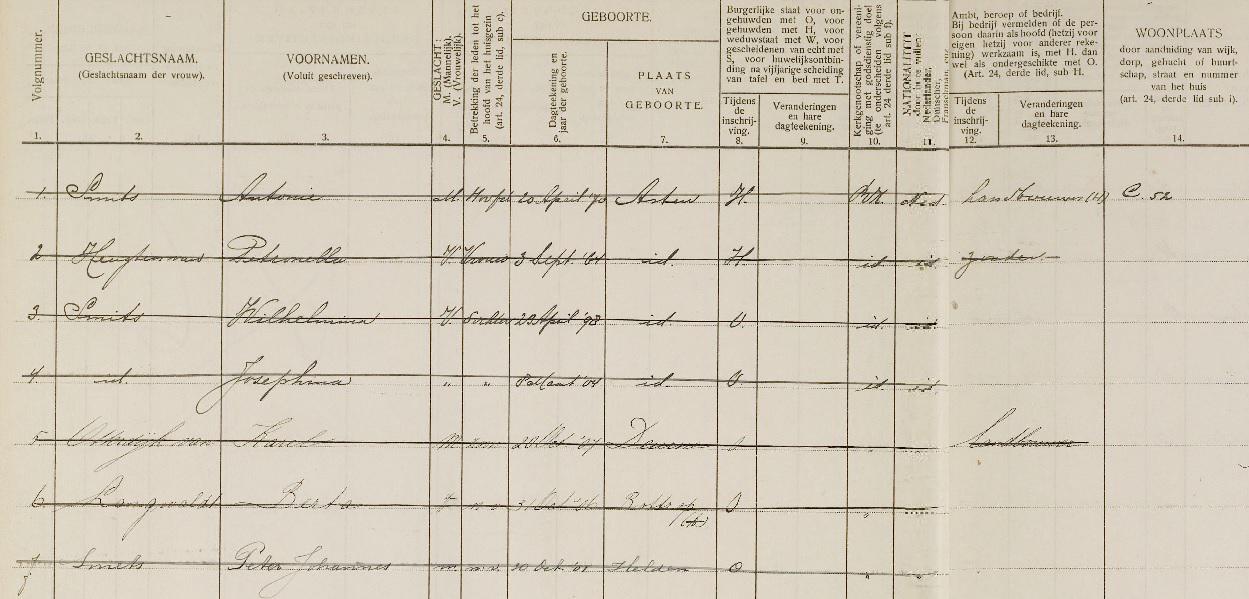 Volgnummer.
1.
GESLACHTSNAAM.
(Geslachtsnaam der vrouw).
2.
VOORNAMEN.
(Voluit geschreven).
3.
GESLACHT:
M. (Mannelijk).
V. (Vrouwelijk).
4.
Betrekking der leden tot het
hoofd van het huisgezin
(art. 24, derde lid, sub c).
5.
GEBOORTE.
Dagteekening en
jaar der geboorte.
6.
PLAATS
VAN
GEBOORTE.
7.
Burgerlijke staat voor on-
gehuwden met O, voor
gehuwden met H, voor
weduwstaat met W, voor
gescheidenen van echt met
S, voor huwelijksontbin-
ding na vijfjarige scheiding
van tafel en bed met T.
Tijdens
de
inschrij-
ving.
8.
Veranderingen
en hare
dagteekening.
9.
Kerkgenootschap of vereeni-
ging met godsdienstig doel
(te onderscheiden volgens
art. 24 derde lid sub f).
10.
NATIONALITEIT
Nederlander,
Duitscher,
Franschman, enz.
11.
Ambt, beroep of bedrijf.
Bij bedrijf vermelden of de per-
soon daarin als hoofd (hetzij voor
eigen hetzij voor anderer reke-
ning) werkzaam is, met H. dan
wel als ondergeschikte met O.
(Art. 24, derde lid, sub H.
Tijdens
de
inschrij-
ving.
12.
Veranderingen
en hare
dagteekening.
13.
WOONPLAATS
door aanduiding van wijk,
dorp, gehucht of buurt-
schap, straat en nummer
van het huis
(art. 24, derde lid sub i).
14.
1. Smits Antonie M. Hoofd 20 April '70 Asten H. RK Ned. Landbouwer (H) C. 52
2 Petronella V. Vrouw 3 Sept. '64 id. H. id id zonder
3. Smits Wilhelmina V. 23 April '98 id. O. id. id.
4. id. Josephina " " 8 Maart '04 id O id id
5 van Karel M Deurne Landbouwer
6 Berta V O "
7 Smets Peter Johannes m. 10 Oct. Helden O " "